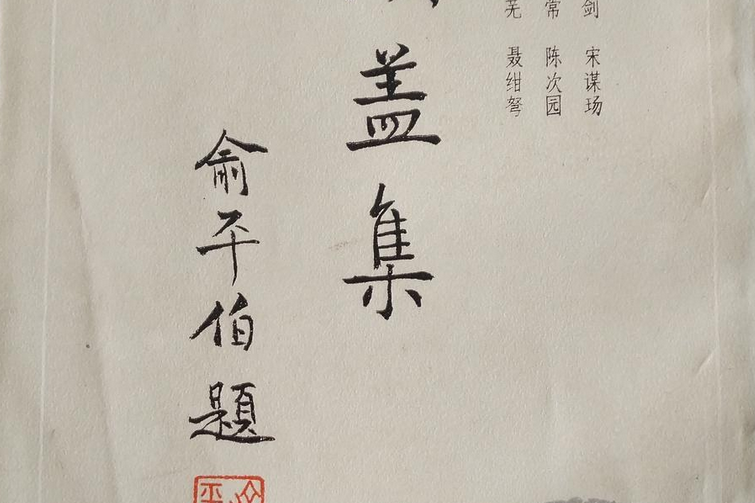 剑 宋谋玚
常 陈次园
芜 聂绀弩
盖集
俞平伯题